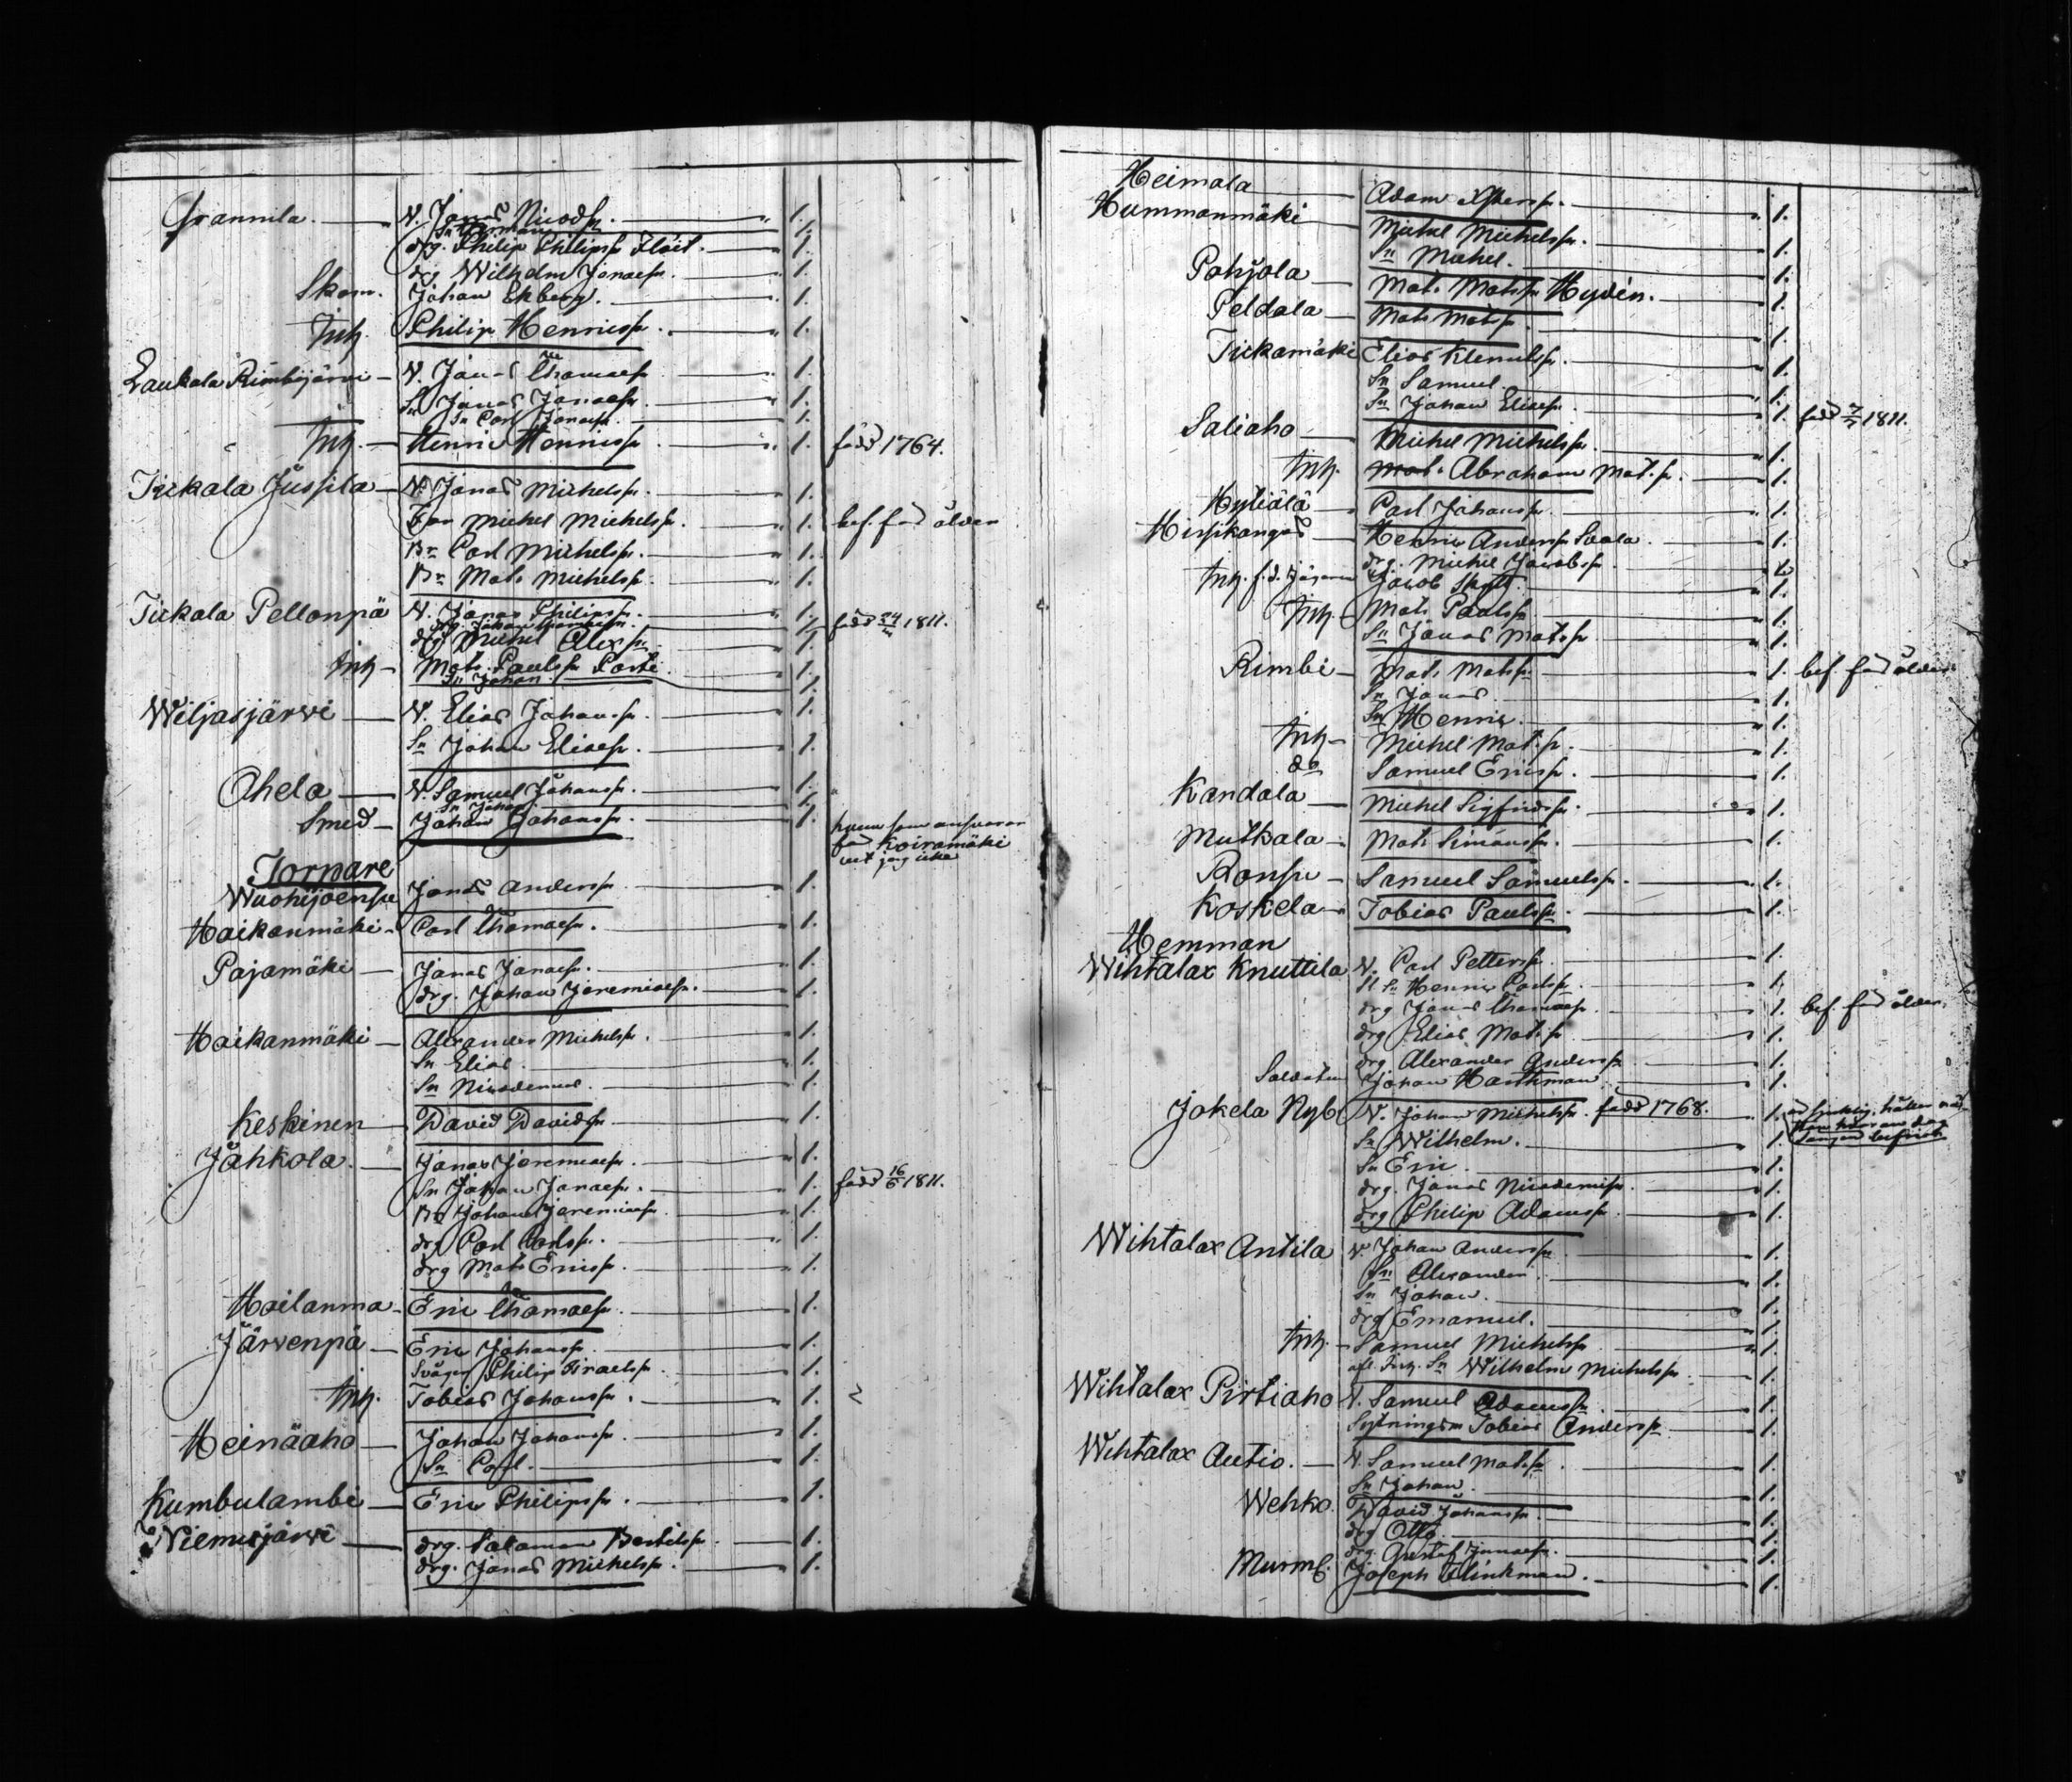 Grannila. — N. Jonas Nicodsn. — 1.
Sn Herman — 1.
drg. Philip Philipsn Flöit. — 1.
drg Wilhelm Jonaesn. — 1.
Skom. Johan Ekberg. — 1.
Inh. Philip Henricsn. — 1.
Laukala Rimbijärvi — N. Jonas Thomaesn — 1.
Sn Jonas Jonaesn — 1.
Sn Carl Jonaesn — 1.
Inh. — Henric Henricsn. — 1. född 1764.
Tickala Jussila — N. Jonas Michelsn. — 1.
Far Michel Michelsn. — 1. bef. för ålder
Br Carl Michelsn. — 1.
Br Mats Michelsn. — 1.
Tickala Pellonpä N. Jonas Philipsn. — 1. född 24/4 1811.
drg. Johan Thomaesn. — 1.
drg Michel Alexsn — 1.
Inh — Mats Paulsn Porti — 1.
Sn Johan. — 1.
Wiljasjärwi — N. Elias Johansn. — 1.
Sn Johan Eliaesn. — 1.
Ahela — N. Samuel Johansn. — 1.
Sn Johan — 1.
Smed — Johan Johansn. — 1.
hvem som ansvarar
för Koiramäki
vet jag icke
Torpare
Wuohijoensu Jonas Andersn — 1.
Haikanmäki — Carl Thomaesn. — 1.
Pajamäki — Jonas Jonaesn. — 1.
drg. Johan Jeremiaesn. — 1.
Haikanmäki — Alexander Michelsn. — 1.
Sn Elias. — 1.
Sn Nicodemus. — 1.
Keskinen — David Davidsn — 1.
Jähkola. — Jonas Jeremiaesn. — 1.
Sn Johan Jonaesn. — 1. född 16/6 1811.
Br Johan Jeremiaesn — 1.
drg Carl Carlsn. — 1.
drg Mats Ericsn. — 1.
Hailanma — Eric Thomaesn. — 1.
Järvenpä — Eric Johansn. — 1.
Svåger Philip Israelsn. — 1.
Inh. Tobias Johansn. — 1.
Heinäaho — Johan Johansn. — 1.
Sn Carl. — 1.
Kumbulambi — Eric Philipsn. — 1.
Niemisjärvi — drg. Salomon Bertilsn. — 1.
drg. Jonas Michelsn. — 1.
Heimola — Adam — 1.
Hummanmäki — Michel Michelsn. — 1.
Sn Michel. — 1.
Pohjola — Mats Matsn Hydén. — 1.
Peldola — Mats Matsn. — 1.
Tickamäki Elias Klemetsn. — 1.
Sn Samuel. — 1.
Sn Johan Eliaesn. — 1. född 7/7 1811.
Saliaho — Michel Michelsn. — 1.
Inh. Abraham Matsn. — 1.
Hytiälä — Carl Johansn. — 1.
Hirsikangas — Henric Andersn Saala. — 1.
drg. Michel Jacobsn. — 1.
Inh. f.d. Jägaren Jacob — 1.
Inh. Mats Paulsn — 1.
Sn Jonas Matsn — 1.
Rimbi — Mats Matsn. — 1. bef. för ålder
Sn Jonas — 1.
Sn Henric. — 1.
Inh — Michel Matsn. — 1.
do Samuel Ericsn. — 1.
Kandola — Michel Sigfridsn. — 1.
Mutkala — Mats Simonsn. — 1.
Ronsu — Samuel Samuelsn. — 1.
Koskela — Tobias Paulsn. — 1.
Hemman
Wihtalax Knuttila N. Carl Pettersn. — 1.
Sn Henric Carlsn. — 1.
drg Jonas Thomaesn. — 1. bef. för ålder.
drg Elias Matsn — 1.
drg Alexander Andersn — 1.
Soldaten Johan Harthman — 1.
Jokela Nyb. N. Johan Michelsn. född 1768. — 1.
Sn Wilhelm. — 1.
Sn Eric. — 1.
drg. Jonas Nicodemisn. — 1.
drg Philip Adamsn. — 1.
Wihtalax Antila N. Johan Andersn. — 1.
Sn Alexander. — 1.
Sn Johan. — 1.
drg Emanuel. — 1.
Inh. — Samuel Michelsn. — 1.
Inh. Sn Wilhelm Michelsn. — 1.
Wihtalax Pirtiaho N. Samuel Adamsn. — 1.
Sytningsm Tobias Andersn. — 1.
Wihtalax Autio. — N. Samuel Matsn. — 1.
Sn Johan. — 1.
Wehko. David Johansn. — 1.
drg Otto. — 1.
drg. Gustaf Jonaesn. — 1.
Murm. Joseph Flinkman. — 1.